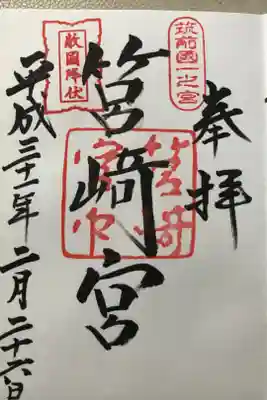 奉拝
筑前國一之宮
筥崎宮
筥崎宮印
敵國降伏
平成三十一年二月二十六日